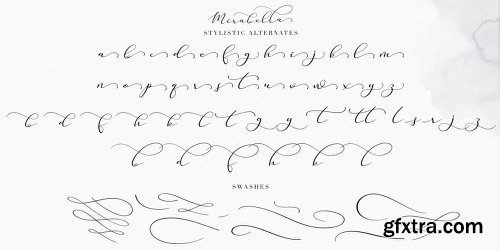 Mirabella
STYLISTIC ALTERNATES
a b c d e f g h i j k l m
n o p q r s t u v w x y z
b d f h k l g y t tt l s r j z
b d f h k l
SWASHES
gfxtra.com